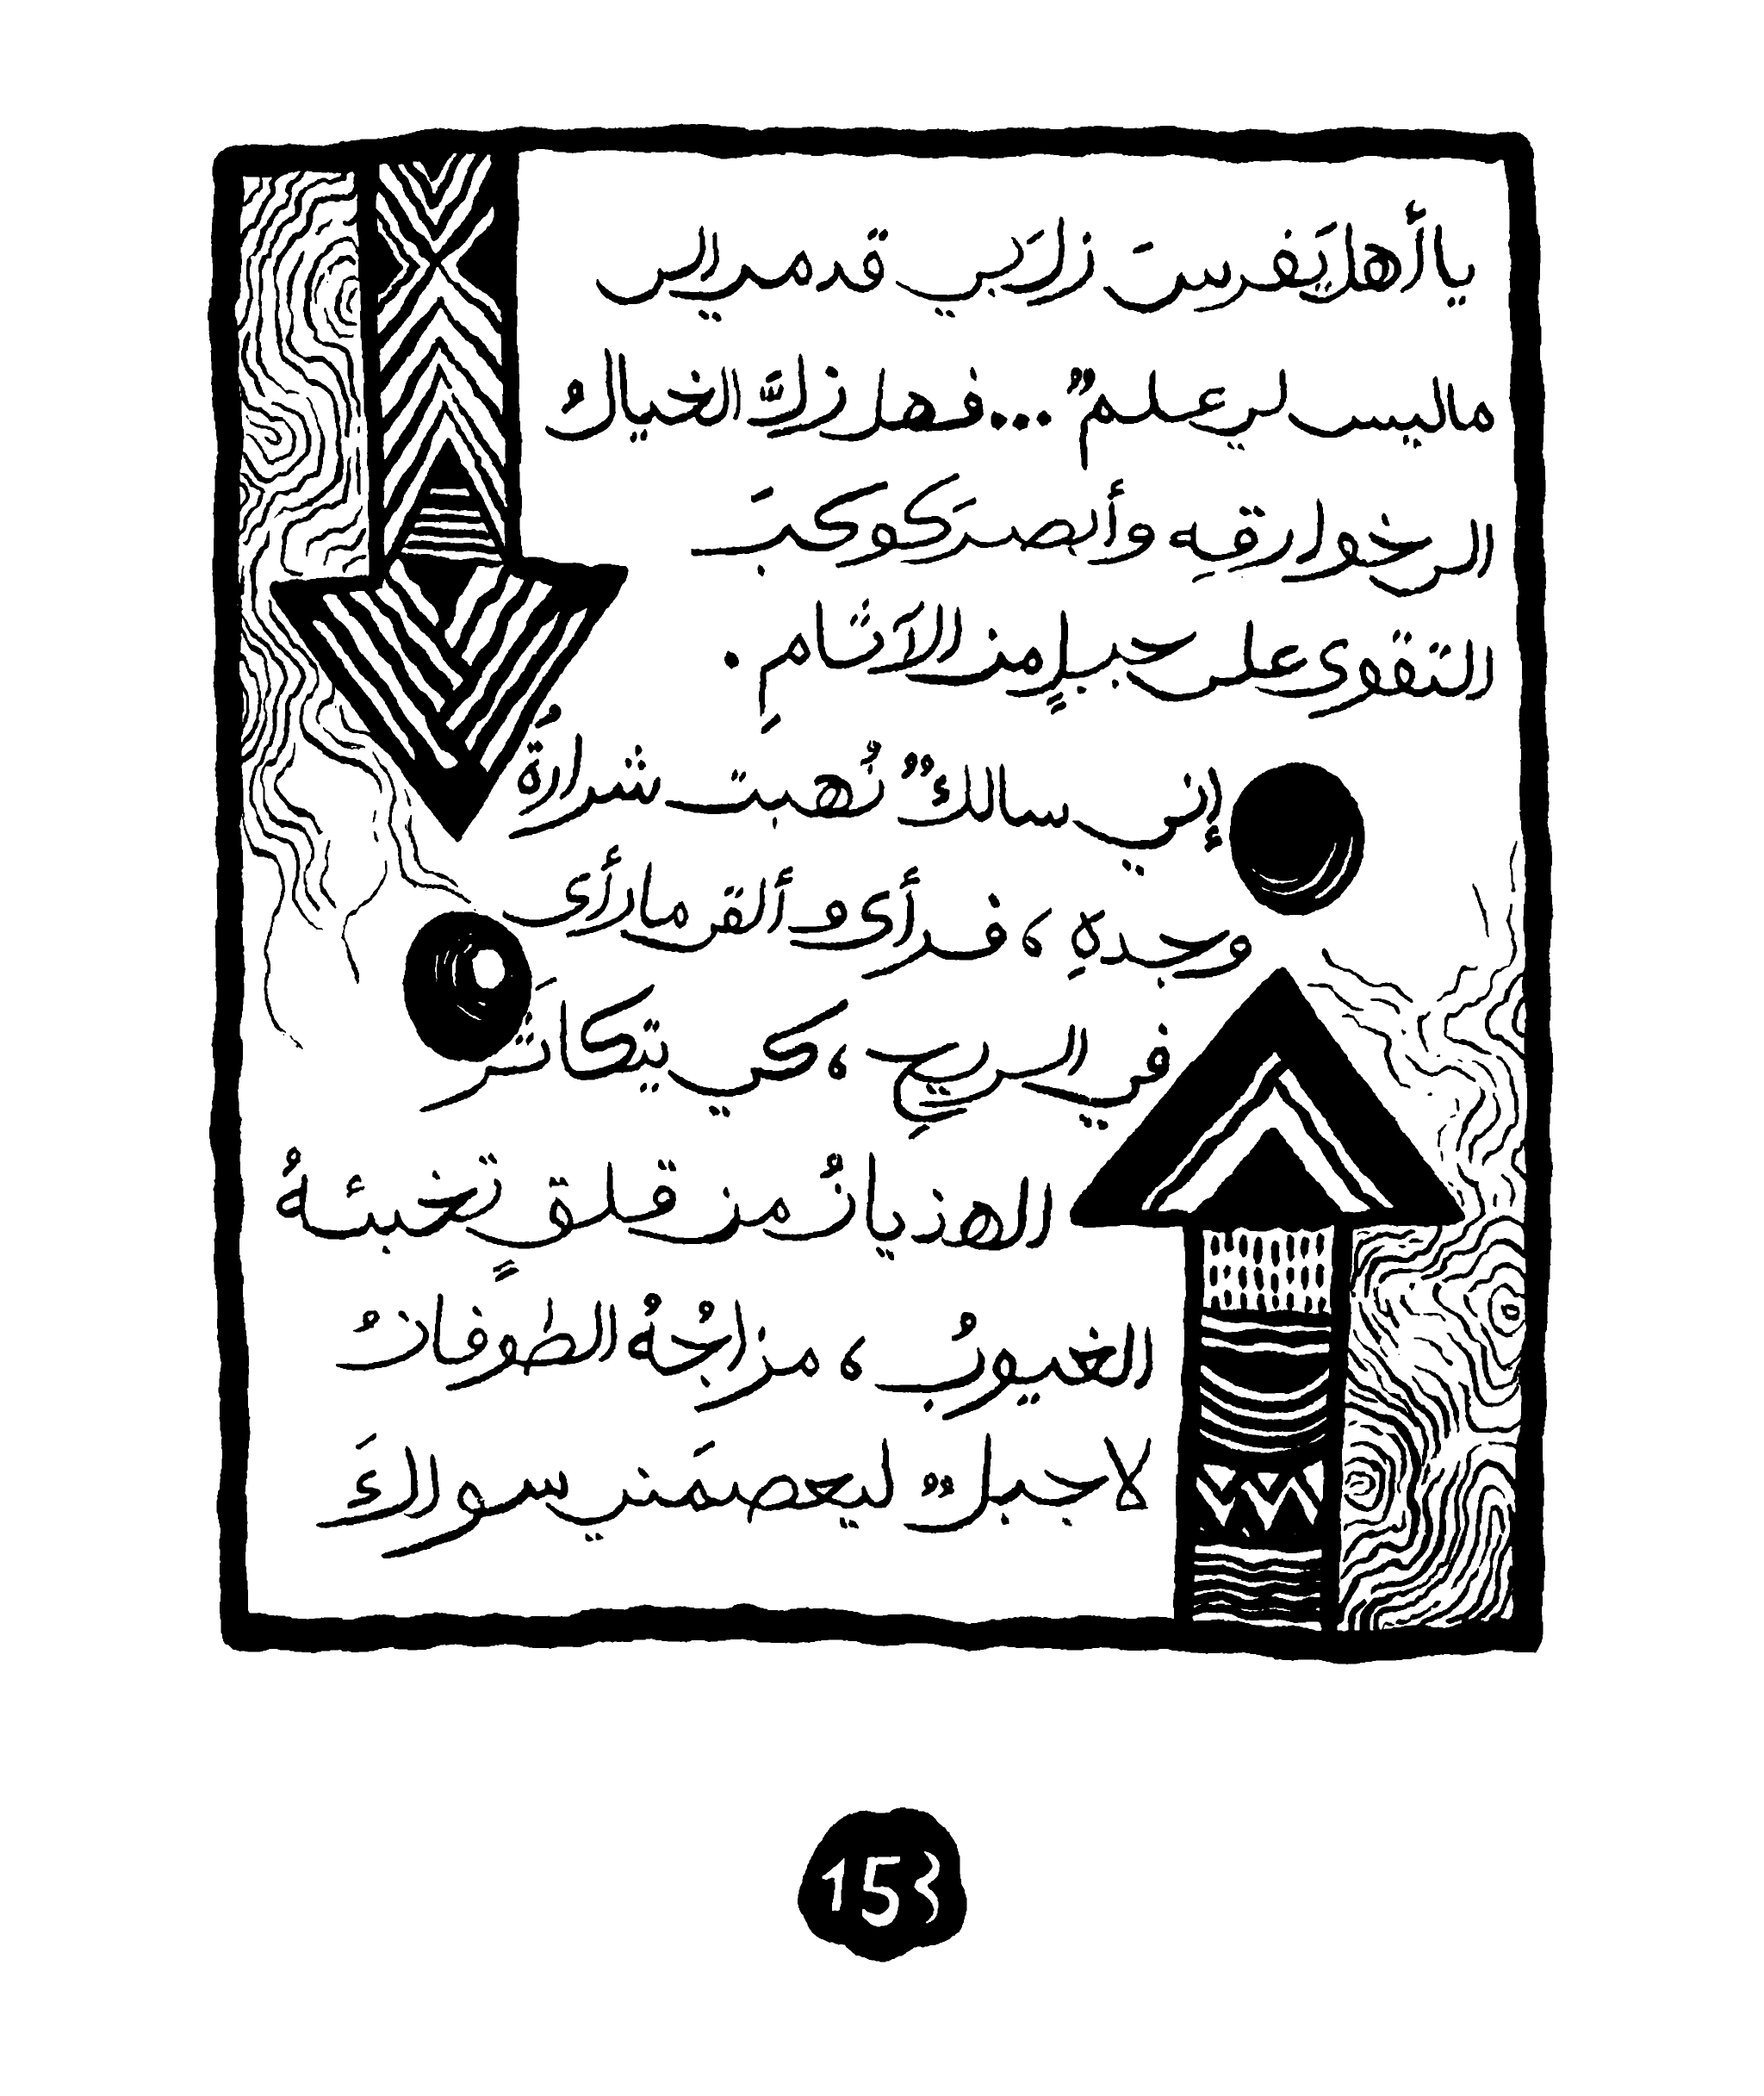 يا أهل يَفرسَ زلَّ بي قدمي إلى
ما ليس لي علمٌ ... فهل زلَّ الخيالُ
إلى خوارقِهِ وأبصرَ كوكبَ
التقوى على جبلٍ من الآثامِ.
إني سالكٌ نُهبت شرارةُ
وجدهِ، فرأى وألقى ما رأى
في الريحِ، كي يتكاثرَ
الهذيانُ من قلقٍ تخبئهُ
الغيوبُ، مزاجُهُ الطوفانُ
لا جبلٌ ليعصمَني سواكَ
153